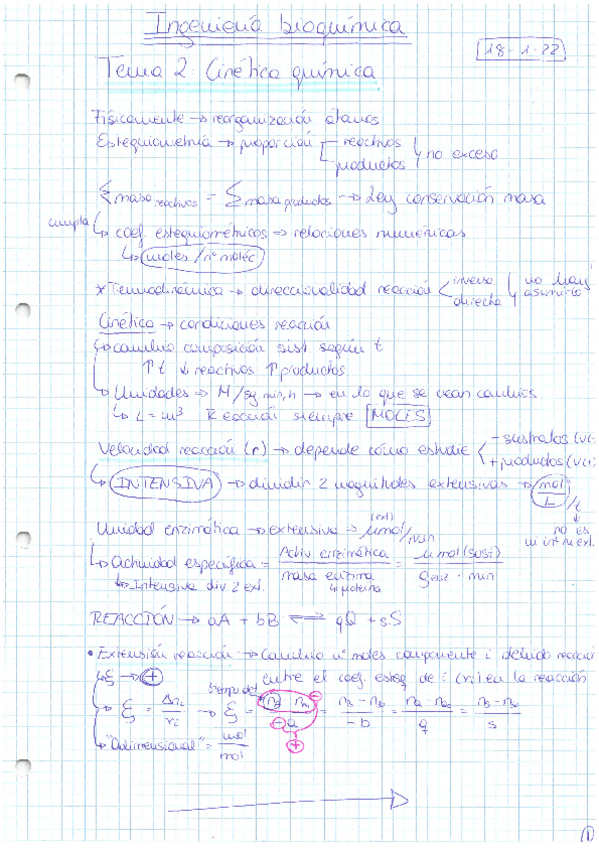 Ingeniería bioquímica
18-1-22
Tema 2: Cinética química
Físicamente → reorganización átomos
Estequiometría → proporción reactivos productos no exceso
Σ masa reactivos = Σ masa productos → Ley conservación masa
cumpla ↳ coef. estequiométricos → relaciones numéricas
↳ moles / nº moléc
* Termodinámica → direccionalidad reacción < inversa directa no hay
Cinética → condiciones reacción
↳ cambio composición sist según t
↑t ↓ reactivos ↑ productos
↳ Unidades → M/sg, min, h → en lo que se vean cambios
↳ L = m³ Reacción siempre MOLES
Velocidad reacción (r) → depende cómo estudie < - sustratos + productos
↳ INTENSIVA → dividir 2 magnitudes extensivas → mol/L /t
no es ni int ni ext.
Unidad enzimática → extensiva → μmol/min
(ext)
↳ Actividad específica = Activ enzimática / masa enzima = μmol (sust) / g enz · min
↳ Intensiva div 2 ext. ↳ proteína
REACCIÓN → aA + bB ⇌ qQ + sS
• Extensión reacción → Cambio nº moles componente i debido reacción
entre el coef. esteq de i (νi) en la reacción
↳ ξ → +
↳ ξ = Δni / νi → ξ = / -a = / -b = / q = / s
Siempre del
- +
↳ "Adimensional" = mol / mol
1